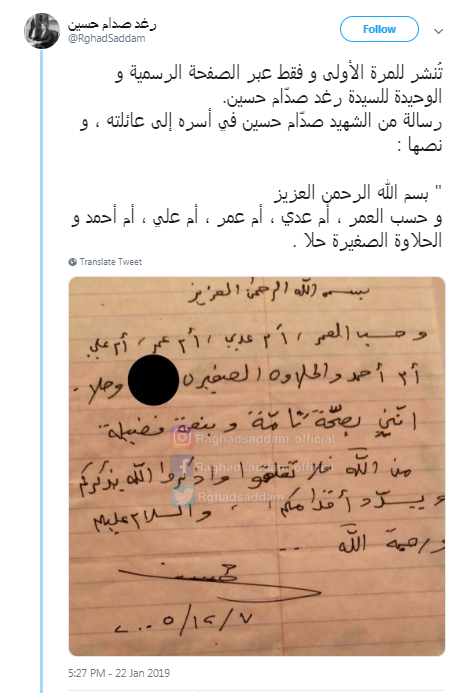 رغد صدام حسين
@RghadSaddam
Follow
تُنشر للمرة الأولى و فقط عبر الصفحة الرسمية و
الوحيدة للسيدة رغد صدّام حسين.
رسالة من الشهيد صدّام حسين في أسره إلى عائلته ، و
نصها :
" بسم الله الرحمن العزيز
و حسب العمر ، أم عدي ، أم عمر ، أم علي ، أم أحمد و
الحلاوة الصغيرة حلا .
Translate Tweet
بسم الله الرحمن العزيز
وحسب العمر ، أم عدي ، أم عمر ، أم علي
أم أحمد والحلاوه الصغيره وحلا ..
انني بصحة تامة و بنعمة فضيلة
Raghadsaddam official
من الله فلا تقلقوا واذكروا الله يذكركم
Raghadsaddam official
و يسدد أقدامكم ، والسلام عليكم
Rghadsaddam
ورحمة الله ..
٢٠٠٥/١٢/٧
5:27 PM - 22 Jan 2019